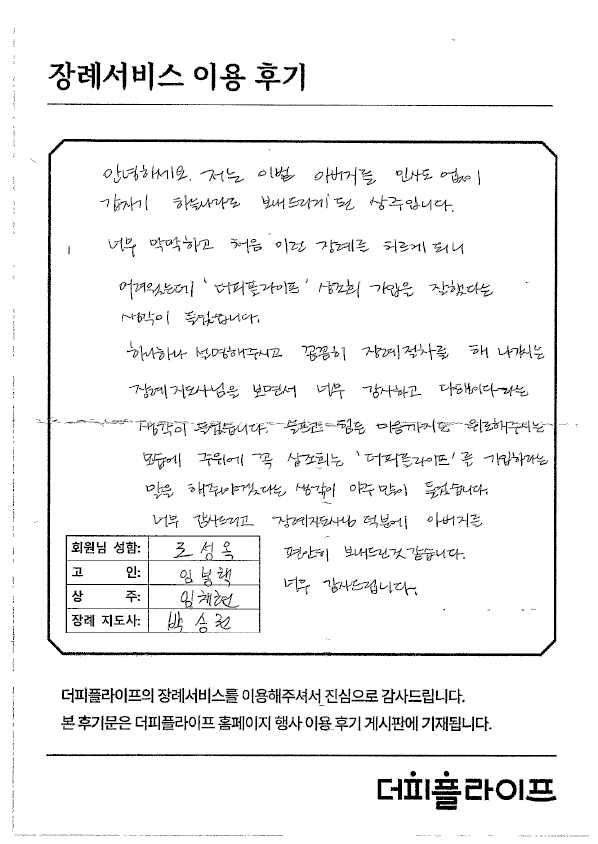 장례서비스 이용 후기
안녕하세요. 저는 이번 아버지를 인사도 없이
갑자기 하늘나라로 보내드리게 된 상주입니다.
너무 막막하고 처음 이런 장례를 치르게 되니
어려웠는데 '더피플라이프' 상조회 가입은 잘했다는
생각이 들었습니다.
하나하나 설명해주시고 꼼꼼히 장례절차를 해 나가시는
장례지도사님을 보면서 너무 감사하고 다행이다라는
생각이 들었습니다. 슬프고 힘든 마음까지도 위로해주시는
모습에 주위에 꼭 상조회는 '더피플라이프'를 가입하라는
말을 해주어야겠다는 생각이 아주 많이 들었습니다.
너무 감사드리고 장례지도사님 덕분에 아버지를
편안히 보내드린것 같습니다.
너무 감사드립니다.
회원님 성함: 조성옥
고 인: 임봉택
상 주: 임채현
장례 지도사: 박승권
더피플라이프의 장례서비스를 이용해주셔서 진심으로 감사드립니다.
본 후기문은 더피플라이프 홈페이지 행사 이용 후기 게시판에 기재됩니다.
더피플라이프